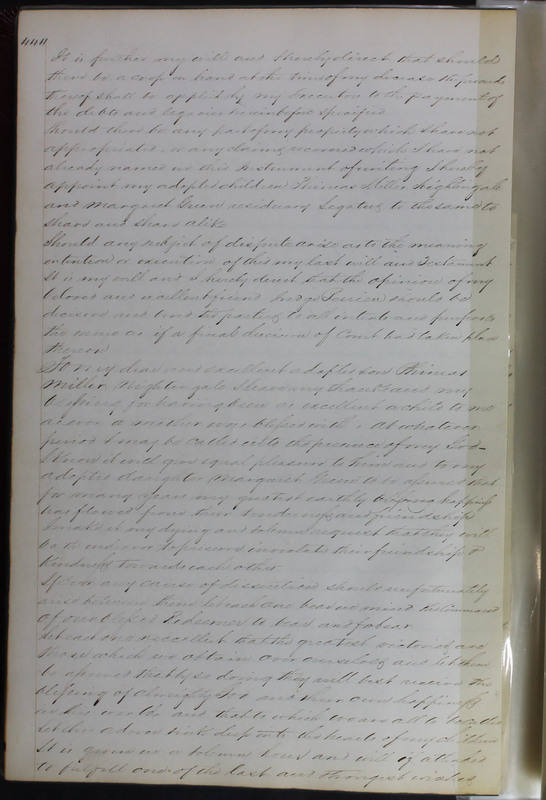 444
It is further my will and I hereby direct that should
there be a crop on hand at the time of my decease the proceeds
thereof shall be applied by my Executors to the payment of
the debts and legacies herein before specified
Should there be any part of my property which I have not
appropriated or any having reserved which I have not
already named in this Instrument of writing I hereby
appoint my adopted children Phineas Miller Nightingale
and Margaret Green residuary Legatees to the same to
share and share alike
Should any subject of dispute arise as to the meaning
intention or execution of this my last will and Testament
It is my will and I hereby direct that the opinion of my
beloved and excellent friend Judge should be
decisive and bind the parties to all intents and purposes
the same as if a final decision of Court had taken place
thereon
To my dear and excellent adopted son Phineas
Miller Nightingale I leave my thanks and my
blessing for having been as excellent a child to me
as ever a mother was blessed with. At whatever
period I may be called into the presence of my God
I know it will give equal pleasure to him and to my
adopted daughter Margaret Green to be assured that
for many years my greatest earthly happiness
has flowed from their tenderness and friendship
I make it my dying and solemn request that they will
both endeavor to preserve inviolate their friendship &
kindness towards each other
If ever any cause of dissention should unfortunately
arise between them let each one bear in mind the Command
of our blessed Redeemer to bear and forbear
Let each one recollect that the greatest victories are
those which we obtain over ourselves and let them
be assured that by so doing they will best receive the
blessing of Almighty God and their own happiness
in this world and that to which we are all to
Let this advice sink deep into the hearts of my children
It is given in a solemn hour and will if attended
to fulfill one of the last and strongest wishes